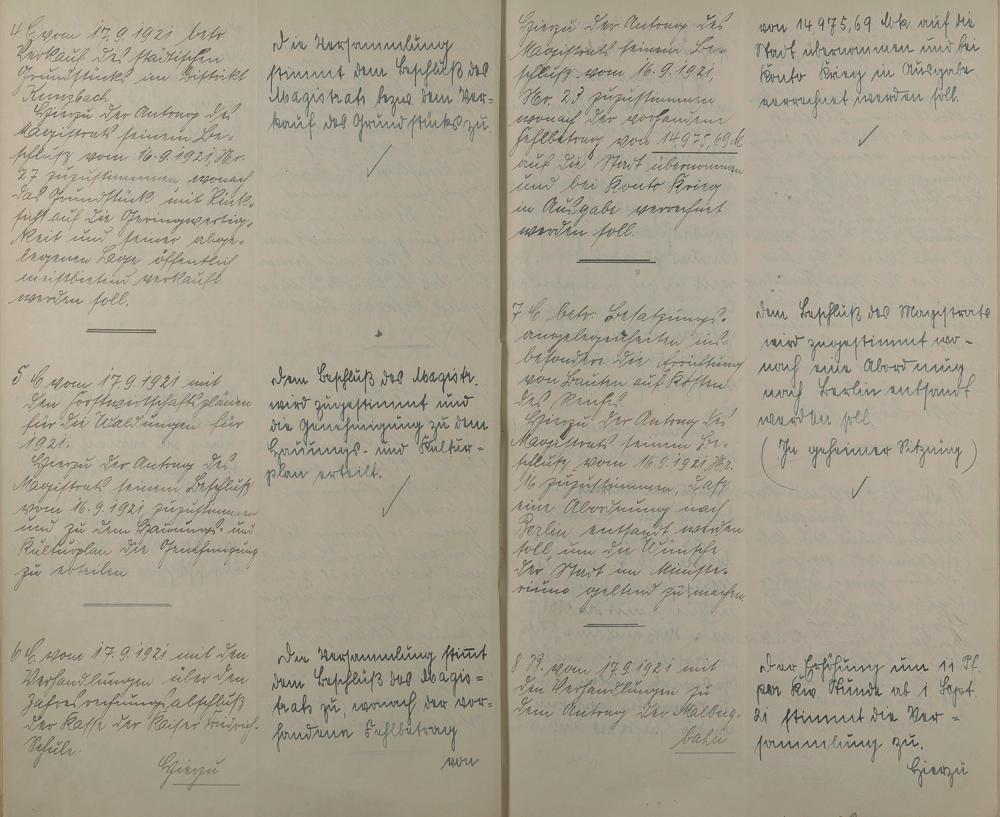 4 E. vom 17.9.1921 betr.
Verkauf des städtischen
Grundstücks im Distrikt
Kunzbach.
Hierzu der Antrag des
Magistrats seinem Be-
schluß vom 16.9.1921, Nr.
27 zuzustimmen wonach
das Grundstück mit Rück-
sicht auf die Geringwertig-
keit und seiner abge-
legenen Lage öffentlich
meistbietend verkauft
werden soll.
Die Versammlung
stimmt dem Beschluß des
Magistrats bezw. dem Ver-
kauf des Grundstücks zu.
5 E vom 17.9.1921 mit
den Forstwirtschaftsplänen
für die Waldungen für
1921.
Hierzu der Antrag des
Magistrats seinem Beschluß
vom 16.9.1921 zuzustimmen
und zu dem Hauungs- und
Kulturplan die Genehmigung
zu erteilen
Dem Beschluß des Magistr.
wird zugestimmt und
die Genehmigung zu dem
Hauungs- und Kultur-
plan erteilt.
6 E. vom 17.9.1921 mit den
Verhandlungen über den
Jahresrechnungsabschluß
der Kasse der Kaiser Friedrich-
Schule.
Hierzu
Die Versammlung stimmt
dem Beschluß des Magis-
trats zu, wonach der vor-
handene Fehlbetrag
von
Hierzu der Antrag des
Magistrats seinem Be-
schluß vom 16.9.1921,
Nr. 23 zuzustimmen
wonach der vorhandene
Fehlbetrag von 14,975,69 M
auf die Stadt übernommen
und bei Konto Krieg
in Ausgabe verrechnet
werden soll.
von 14 975,69 Mk auf die
Stadt übernommen und bei
Konto Krieg in Ausgabe
verrechnet werden soll.
7 E betr. Besatzungs-
angelegenheiten ins-
besondere die Errichtung
von Bauten auf Kosten
des Reichs.
Hierzu der Antrag des
Magistrats seinem Be-
schluß vom 16.9.1921, Nr.
16 zuzustimmen, daß
eine Abordnung nach
Berlin entsandt werden
soll, um die Wünsche
der Stadt im Ministe-
rium geltend zu machen.
Dem Beschluß des Magistrats
wird zugestimmt wo-
nach eine Abordnung
nach Berlin entsandt
werden soll.
(In geheimer Sitzung)
8 B. vom 17.9.1921 mit
den Verhandlungen zu
dem Antrag der Malberg-
bahn
Der Erhöhung um 11 Pf.
per Kw Stunde ab 1 Sept.
21 stimmt die Ver-
sammlung zu.
Hierzu